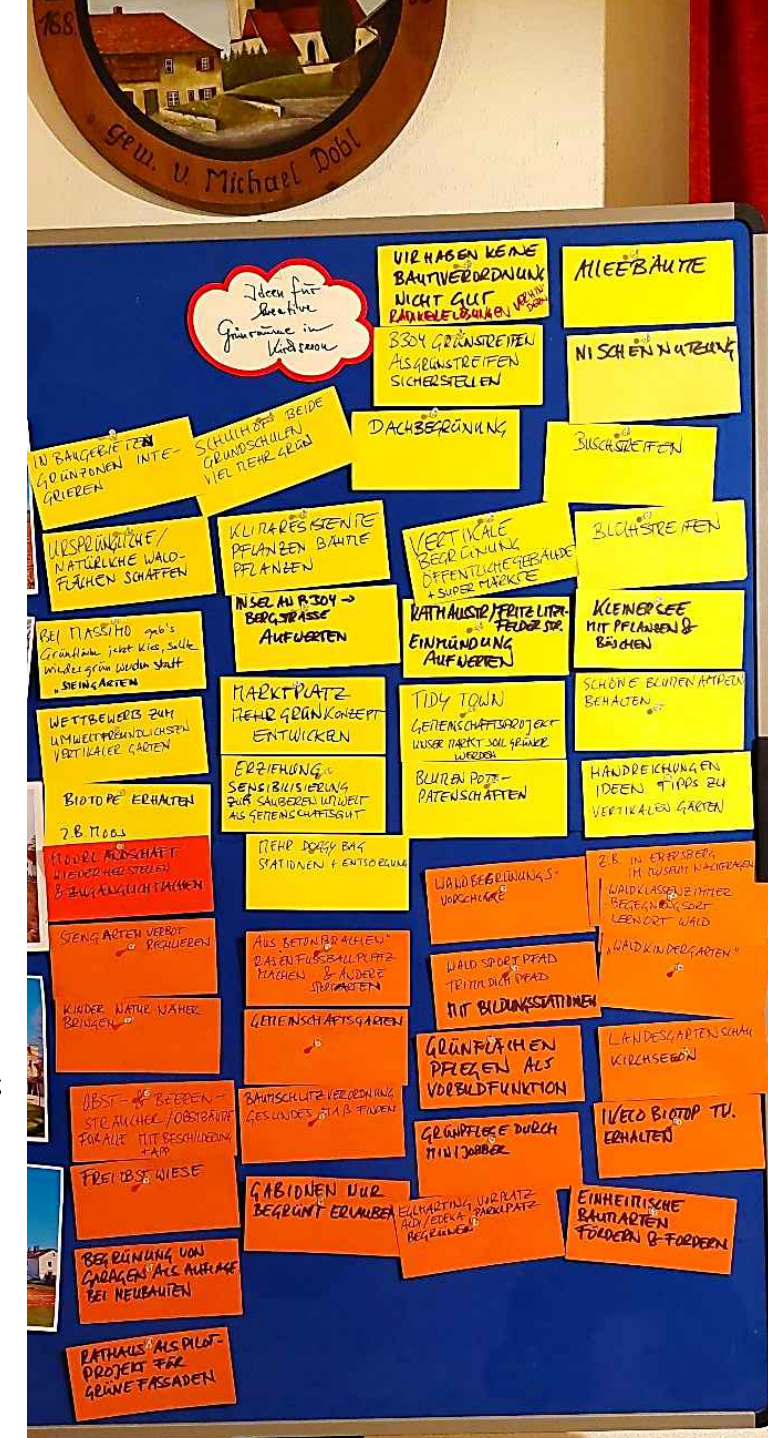 168.
gem. v. Michael Dobl
Ideen für
kreative
Grünräume in
Kirchseeon
WIR HABEN KEINE
BAUMVERORDNUNG
NICHT GUT
RADIKALE LÖSUNGEN VERHIN-
DERN
ALLEEBÄUME
B304 GRÜNSTREIFEN
ALS GRÜNSTREIFEN
SICHERSTELLEN
NISCHENNUTZUNG
IN BAUGEBIETEN
GRÜNZONEN INTE-
GRIEREN
SCHULHÖFE BEIDE
GRUNDSCHULEN
VIEL MEHR GRÜN
DACHBEGRÜNUNG
BUSCHSTREIFEN
URSPRÜNGLICHE/
NATÜRLICHE WALD-
FLÄCHEN SCHAFFEN
KLIMARESISTENTE
PFLANZEN BÄUME
PFLANZEN
VERTIKALE
BEGRÜNUNG
ÖFFENTLICHE GEBÄUDE
+ SUPERMÄRKTE
BLÜHSTREIFEN
BEI MASSIMO gab's
Grünfläche jetzt Kies, sollte
wieder grün werden statt
"STEINGARTEN
INSEL AN B304 →
BERGSTRASSE
AUFWERTEN
RATHAUSSTR/FRITZ LITZL-
FELDER STR.
EINMÜNDUNG
AUFWERTEN
KLEINER SEE
MIT PFLANZEN &
BÜSCHEN
WETTBEWERB ZUM
UMWELTFREUNDLICHSTEN
VERTIKALER GARTEN
MARKTPLATZ
MEHR GRÜNKONZEPT
ENTWICKELN
TIDY TOWN
GEMEINSCHAFTSPROJEKT
UNSER MARKT SOLL GRÜNER
WERDEN
SCHÖNE BLUMENAMPELN
BEHALTEN
BIOTOPE ERHALTEN
Z.B. MOOS
ERZIEHUNG
SENSIBILISIERUNG
ZUR SAUBEREN UMWELT
ALS GEMEINSCHAFTSGUT
BLUMEN POTE-
PATENSCHAFTEN
HANDREICHUNGEN
IDEEN TIPPS ZU
VERTIKALEN GÄRTEN
MOORLANDSCHAFT
WIEDERHERSTELLEN
& ZUGÄNGLICH MACHEN
MEHR DOGGY BAG
STATIONEN + ENTSORGUNG
WANDBEGRÜNUNGS-
VORSCHLÄGE
Z.B. IN EBERSBERG
IM MUSEUM NACHFRAGEN
WALDKLASSENZIMMER
- BEGEGNUNGSORT
- LERNORT WALD
STEINGARTEN VERBOT
REGULIEREN
AUS BETON "BRACHEN"
RASENFUSSBALLPLATZ
MACHEN & ANDERE
SPORTARTEN
WALDSPORTPFAD
TRIMM DICH PFAD
MIT BILDUNGSSTATIONEN
"WALDKINDERGARTEN"
KINDER NATUR NÄHER
BRINGEN
GEMEINSCHAFTSGARTEN
GRÜNFLÄCHEN
PFLEGEN ALS
VORBILDFUNKTION
LANDESGARTENSCHAU
KIRCHSEEON
OBST- & BEEREN-
STRÄUCHER/OBSTBÄUME
FÜR ALLE MIT BESCHILDERUNG
+ APP
BAUMSCHUTZVERORDNUNG
GESUNDES MAß FINDEN
GRÜNPFLEGE DURCH
MINIJOBBER
IVECO BIOTOP TÜ.
ERHALTEN
FREI OBST WIESE
GABIONEN NUR
BEGRÜNT ERLAUBEN
EGLHARTING VORPLATZ
ALDI/EDEKA PARKPLATZ
BEGRÜNEN
EINHEIMISCHE
BAUMARTEN
FÖRDERN & FORDERN
BEGRÜNUNG VON
GARAGEN ALS AUFLAGE
BEI NEUBAUTEN
RATHAUS ALS PILOT-
PROJEKT FÜR
GRÜNE FASSADEN